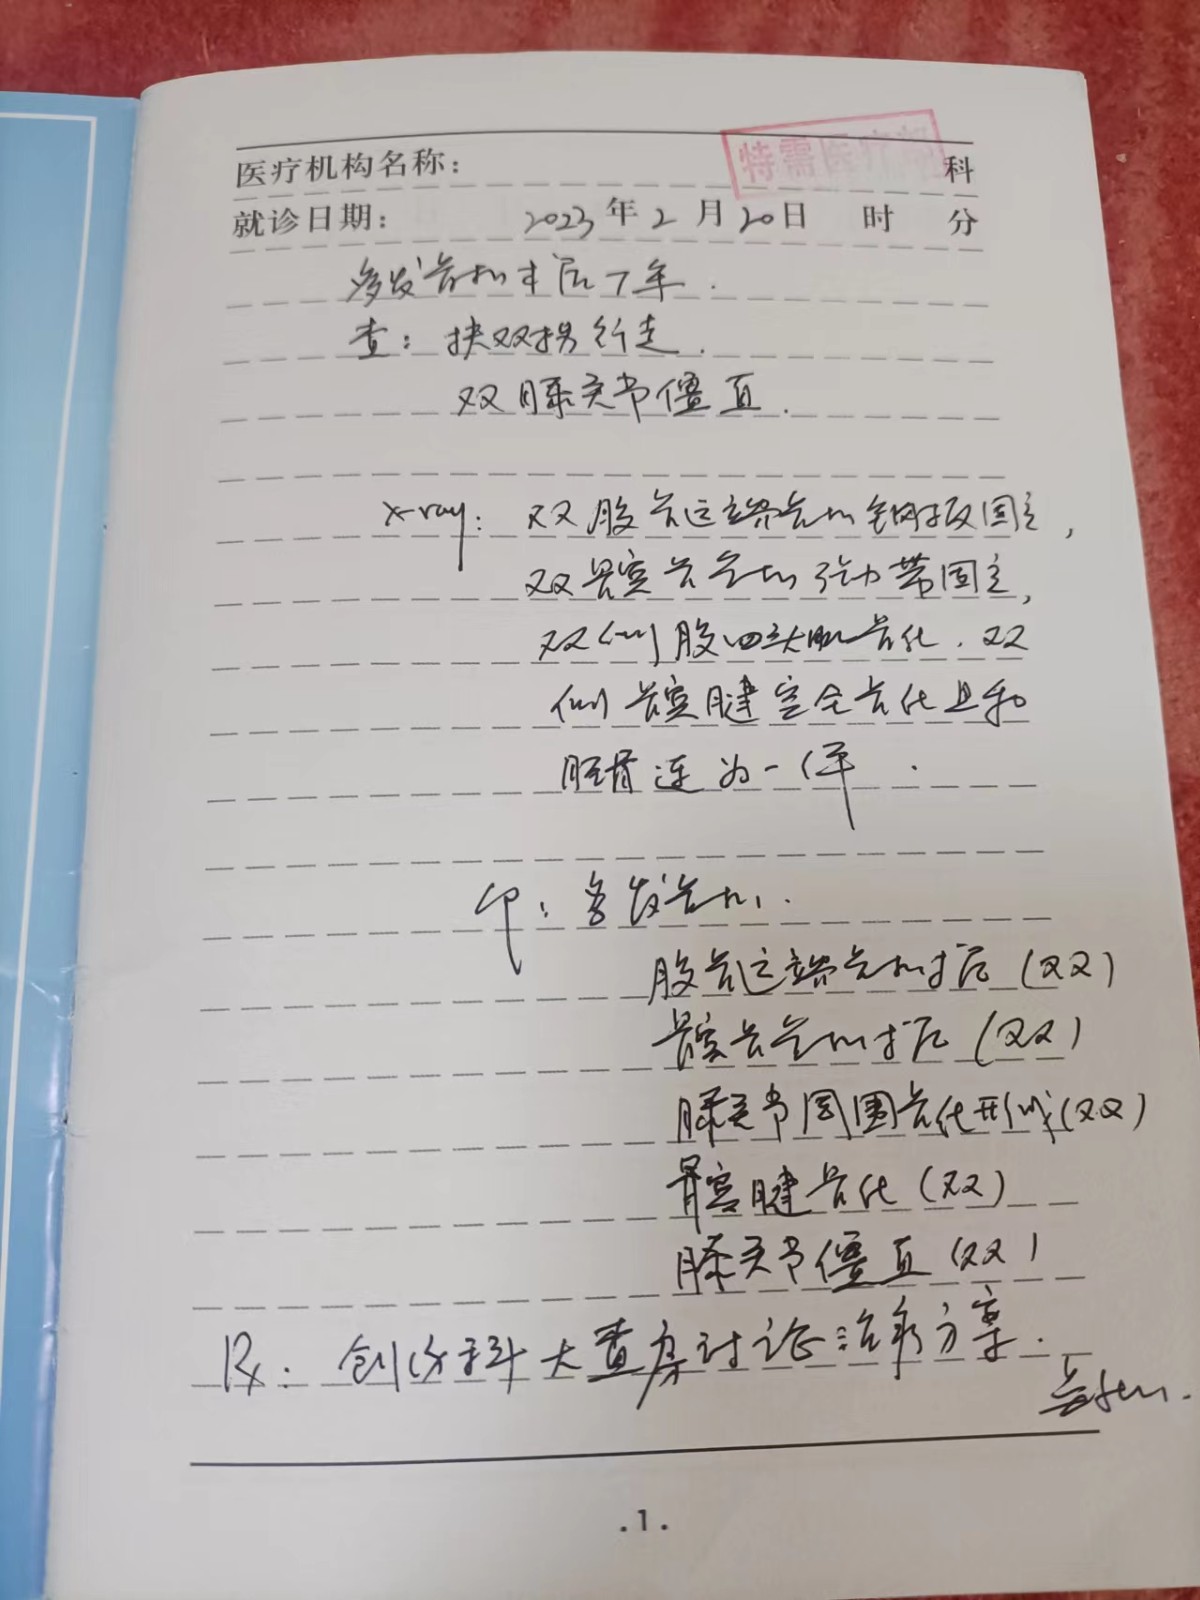 特需医疗部
医疗机构名称： 科
就诊日期： 2023年2月20日 时 分
多发骨折术后7年.
查：扶双拐行走.
双膝关节僵直.
X-ray: 双股骨远端骨折钢板固定,
双髌骨骨折张力带固定,
双侧股四头肌骨化. 双
侧髌腱完全骨化且和
胫骨连为一体.
印：多发骨折.
股骨远端骨折术后(双)
髌骨骨折术后(双)
膝关节周围骨化形成(双)
髌腱骨化(双)
膝关节僵直(双)
Rx: 创伤科大查房讨论治疗方案.
.1.